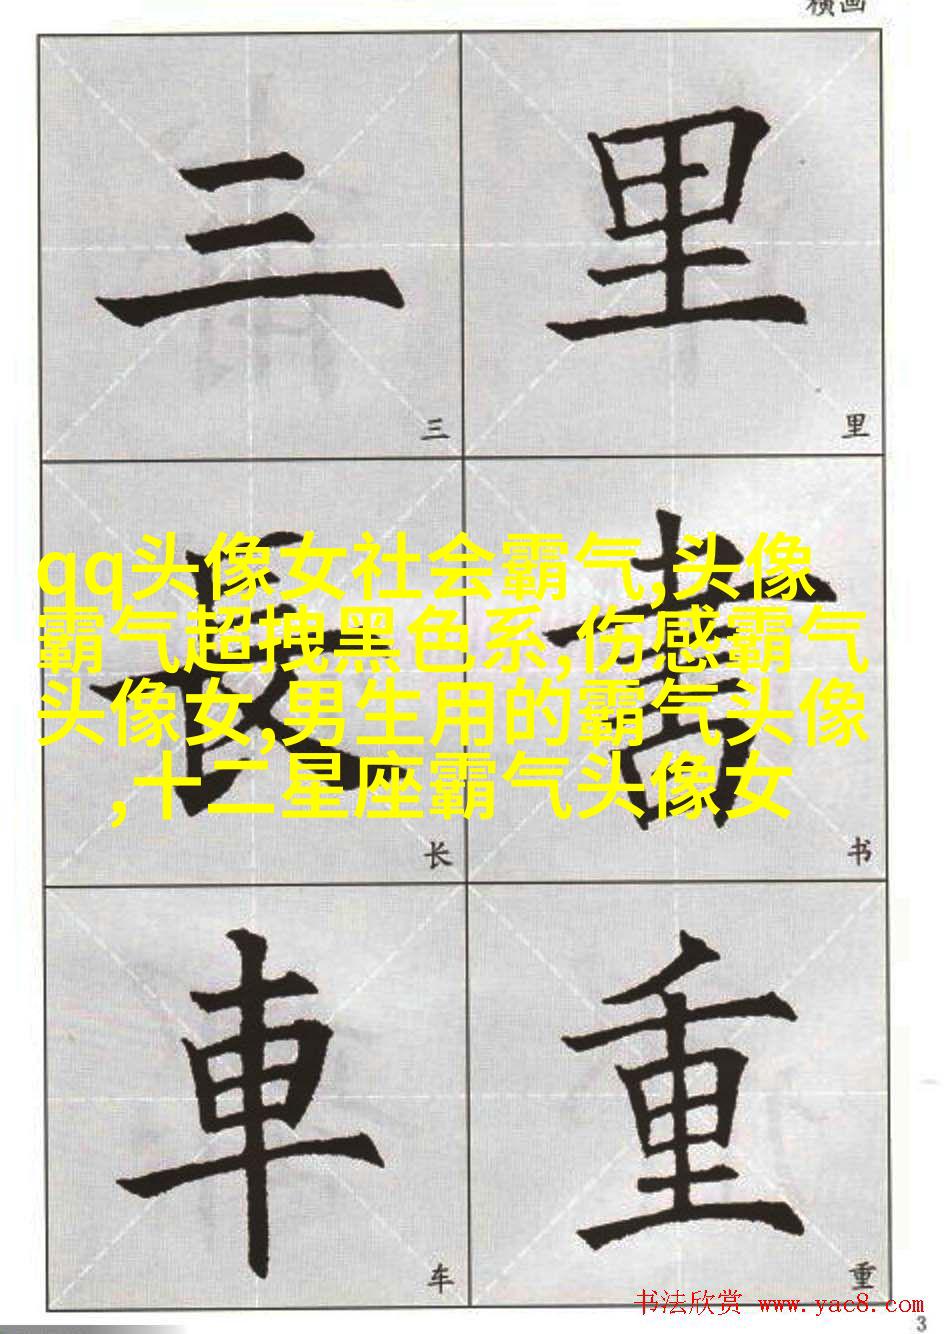 横画
三 里
三 里
長 書
qq头像女社会霸气,头像
霸气超拽黑色系,伤感霸气
头像女,男生用的霸气头像
,十二星座霸气头像女
长 书
車 重
车 重
书法欣赏 www.yac8.com
3